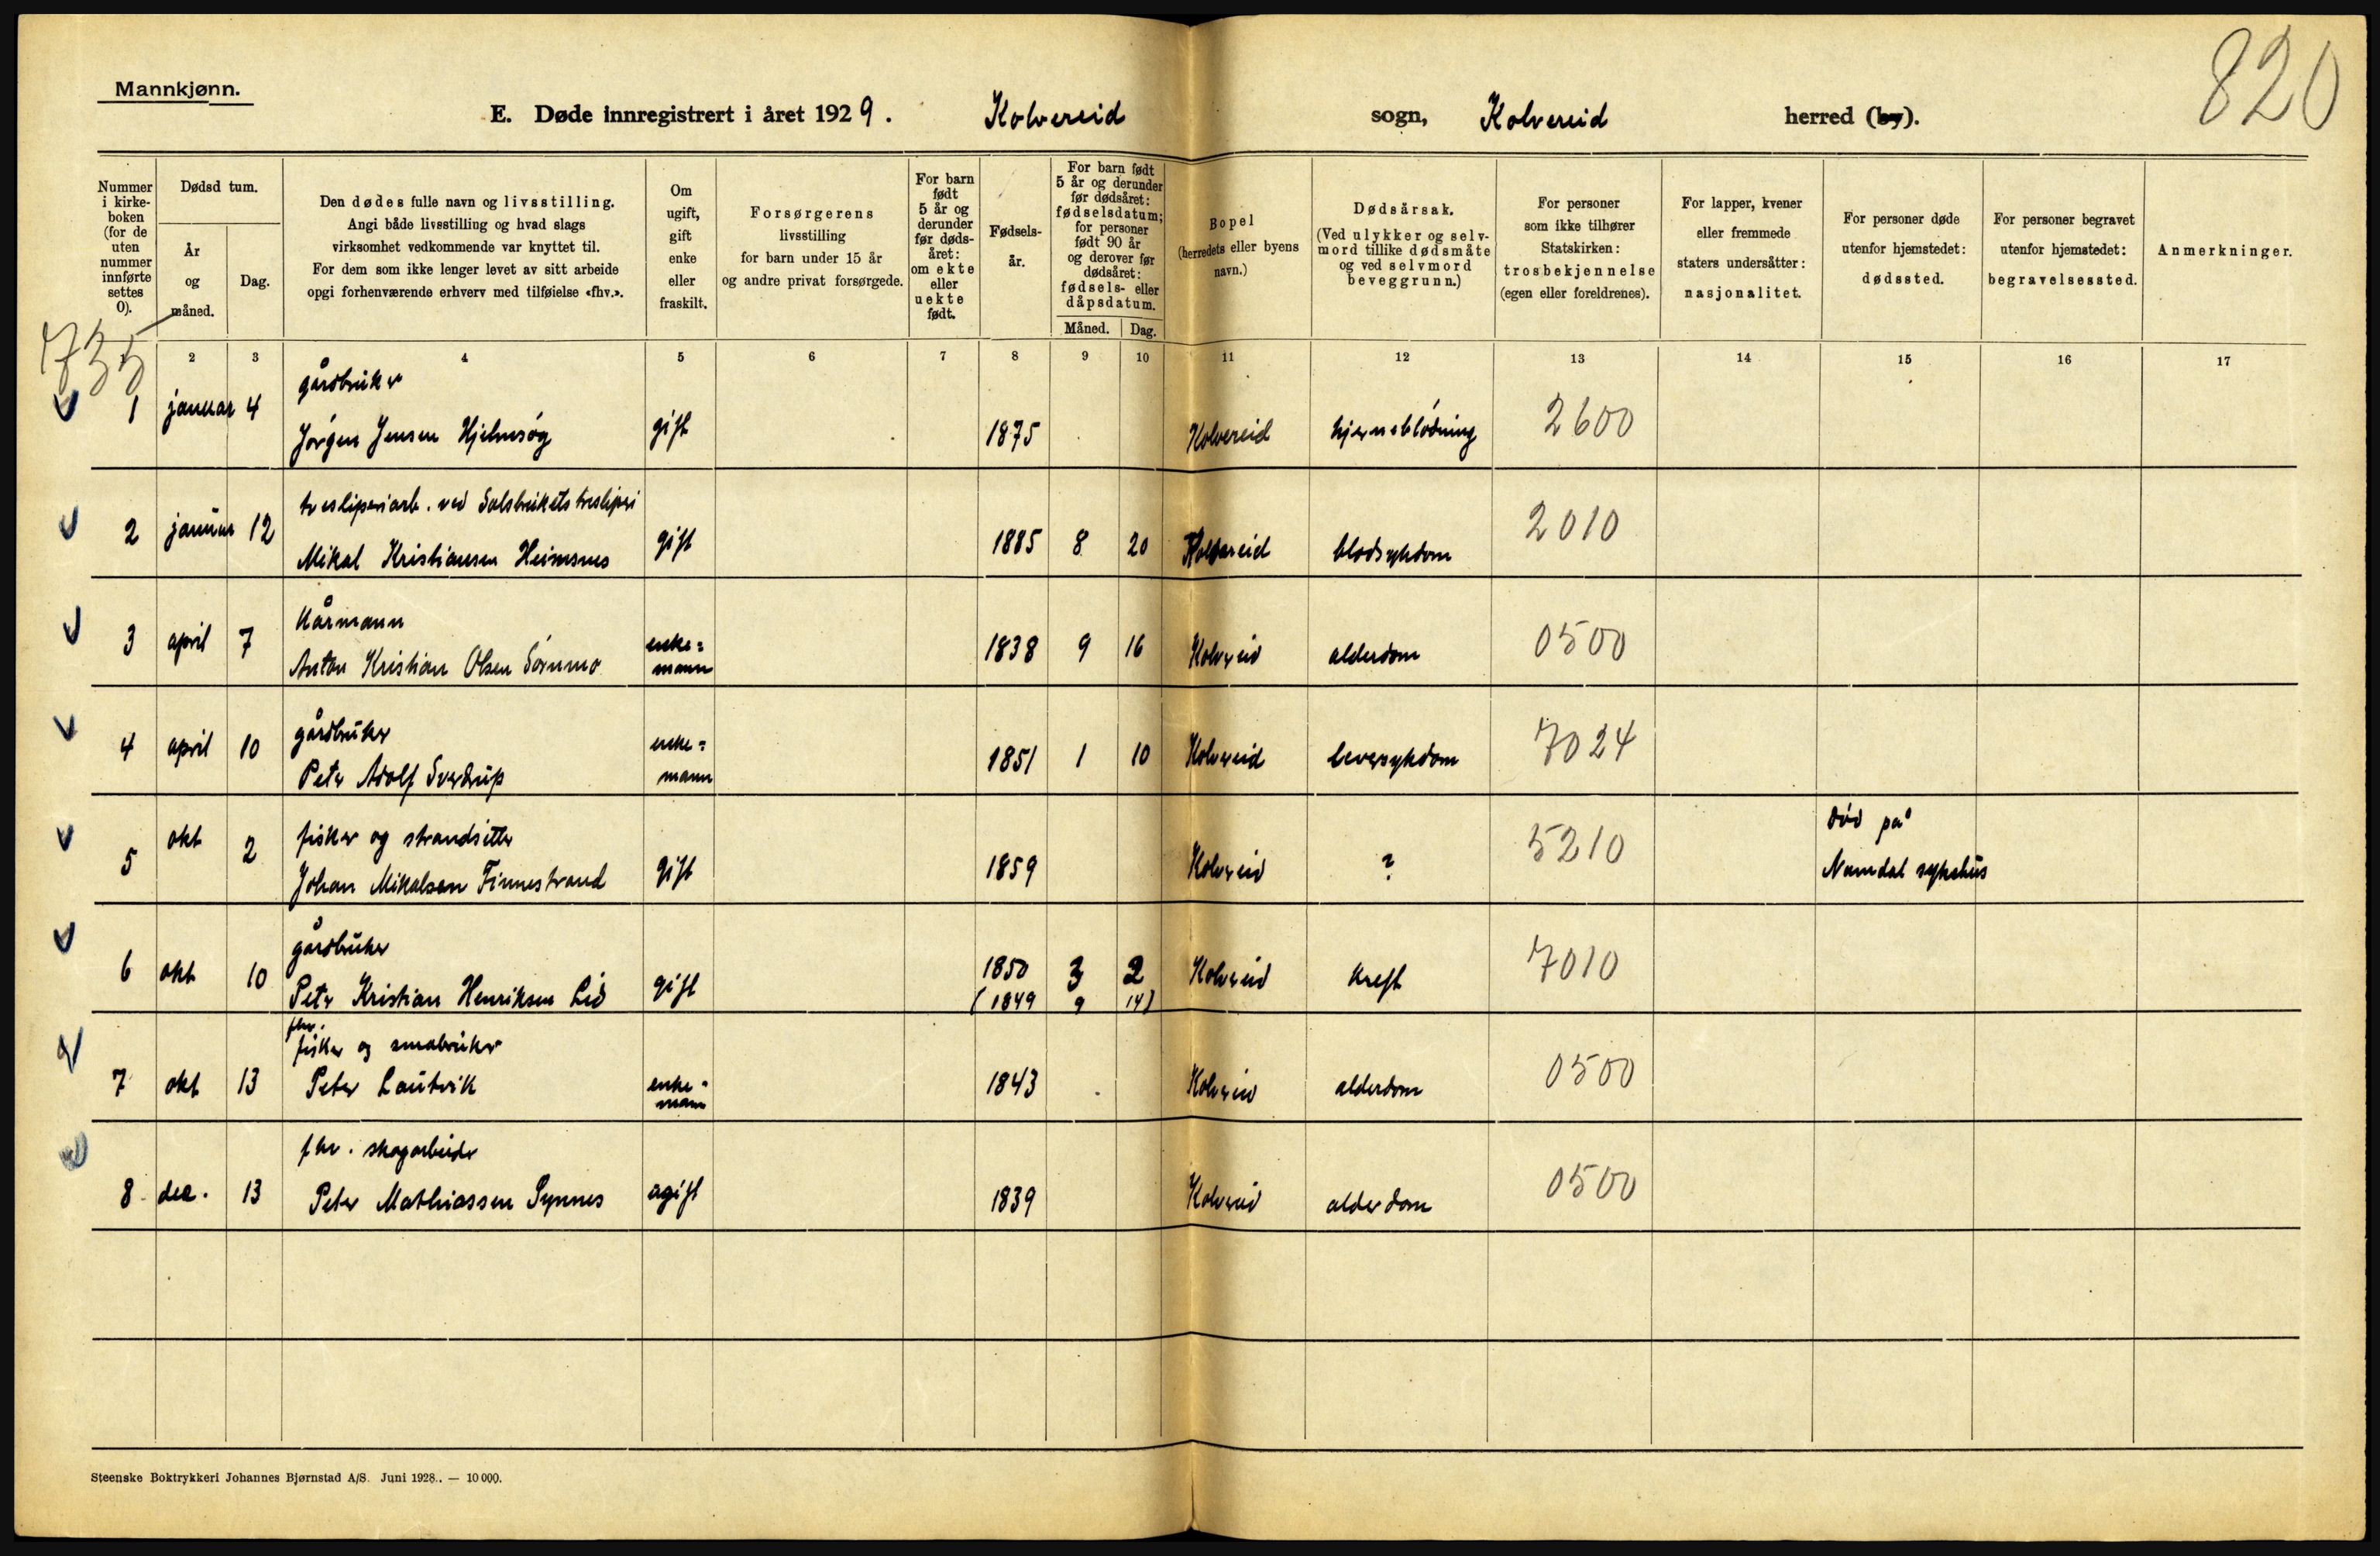 820
Mannkjønn.
E. Døde innregistrert i året 1929. Kolvereid sogn, Kolvereid herred (by).
Nummer i kirkeboken (for de uten nummer innførte settes 0).
Dødsd tum.
År og måned.
Dag.
Den dødes fulle navn og livsstilling.
Angi både livsstilling og hvad slags
virksomhet vedkommende var knyttet til.
For dem som ikke lenger levet av sitt arbeide
opgi forhenværende erhverv med tilføielse «fhv.».
Om ugift, gift enke eller fraskilt.
Forsørgerens
livsstilling
for barn under 15 år
og andre privat forsørgede.
For barn født 5 år og derunder før dødsåret: om ekte eller uekte født.
Fødselsår.
For barn født 5 år og derunder før dødsåret: fødselsdatum; for personer født 90 år og derover før dødsåret: fødsels- eller dåpsdatum.
Måned. Dag.
Bopel
(herredets eller byens
navn.)
Dødsårsak.
(Ved ulykker og selvmord tillike dødsmåte og ved selvmord beveggrunn.)
For personer
som ikke tilhører
Statskirken:
trosbekjennelse
(egen eller foreldrenes).
For lapper, kvener
eller fremmede
staters undersåtter:
nasjonalitet.
For personer døde
utenfor hjemstedet:
dødssted.
For personer begravet
utenfor hjemstedet:
begravelsessted.
Anmerkninger.
735
2 3 4 5 6 7 8 9 10 11 12 13 14 15 16 17
gårdbruker
1 januar 4 Jørgen Jensen Hjelmsøy gift 1875 Kolvereid hjerneblødning 2600
tresliperiarb. ved Salsbrukets tresliperi
2 januar 12 Mikal Kristiansen Heimsnes gift 1885 8 20 Kolvereid blodsykdom 2010
Kårmann
3 april 7 Anton Kristian Olsen Sørnmo enke=mann 1838 9 16 Kolvereid alderdom 0500
gårdbruker
4 april 10 Peter Adolf Sverdrup enke=mann 1851 1 10 Kolvereid leversykdom 7024
fisker og strandsitter
5 okt 2 Johan Mikalsen Finnestrand gift 1859 Kolvereid ? 5210 død på Namdal sykehus
gårdbruker
6 okt 10 Peter Kristian Henriksen Lid gift 1850 3 2 Kolvereid kreft 7010
(1849 9 14)
fhv.
fisker og småbruker
7 okt 13 Peter Lautvik enke=mann 1843 Kolvereid alderdom 0500
fhv. skogarbeider
8 des. 13 Peter Mathiassen Synnes ugift 1839 Kolvereid alderdom 0500
Steenske Boktrykkeri Johannes Bjørnstad A/S. Juni 1928. — 10 000.